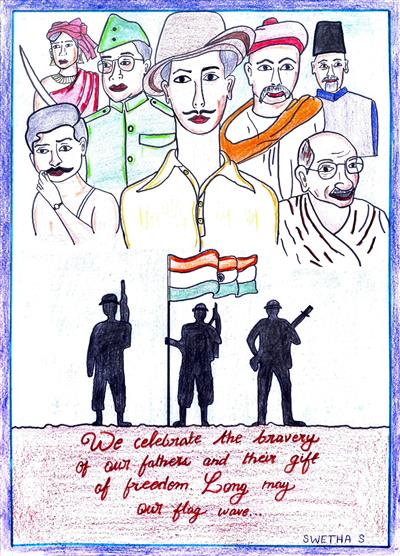 We celebrate the bravery
of our fathers and their gift
of freedom. Long may
our flag wave...
SWETHA S